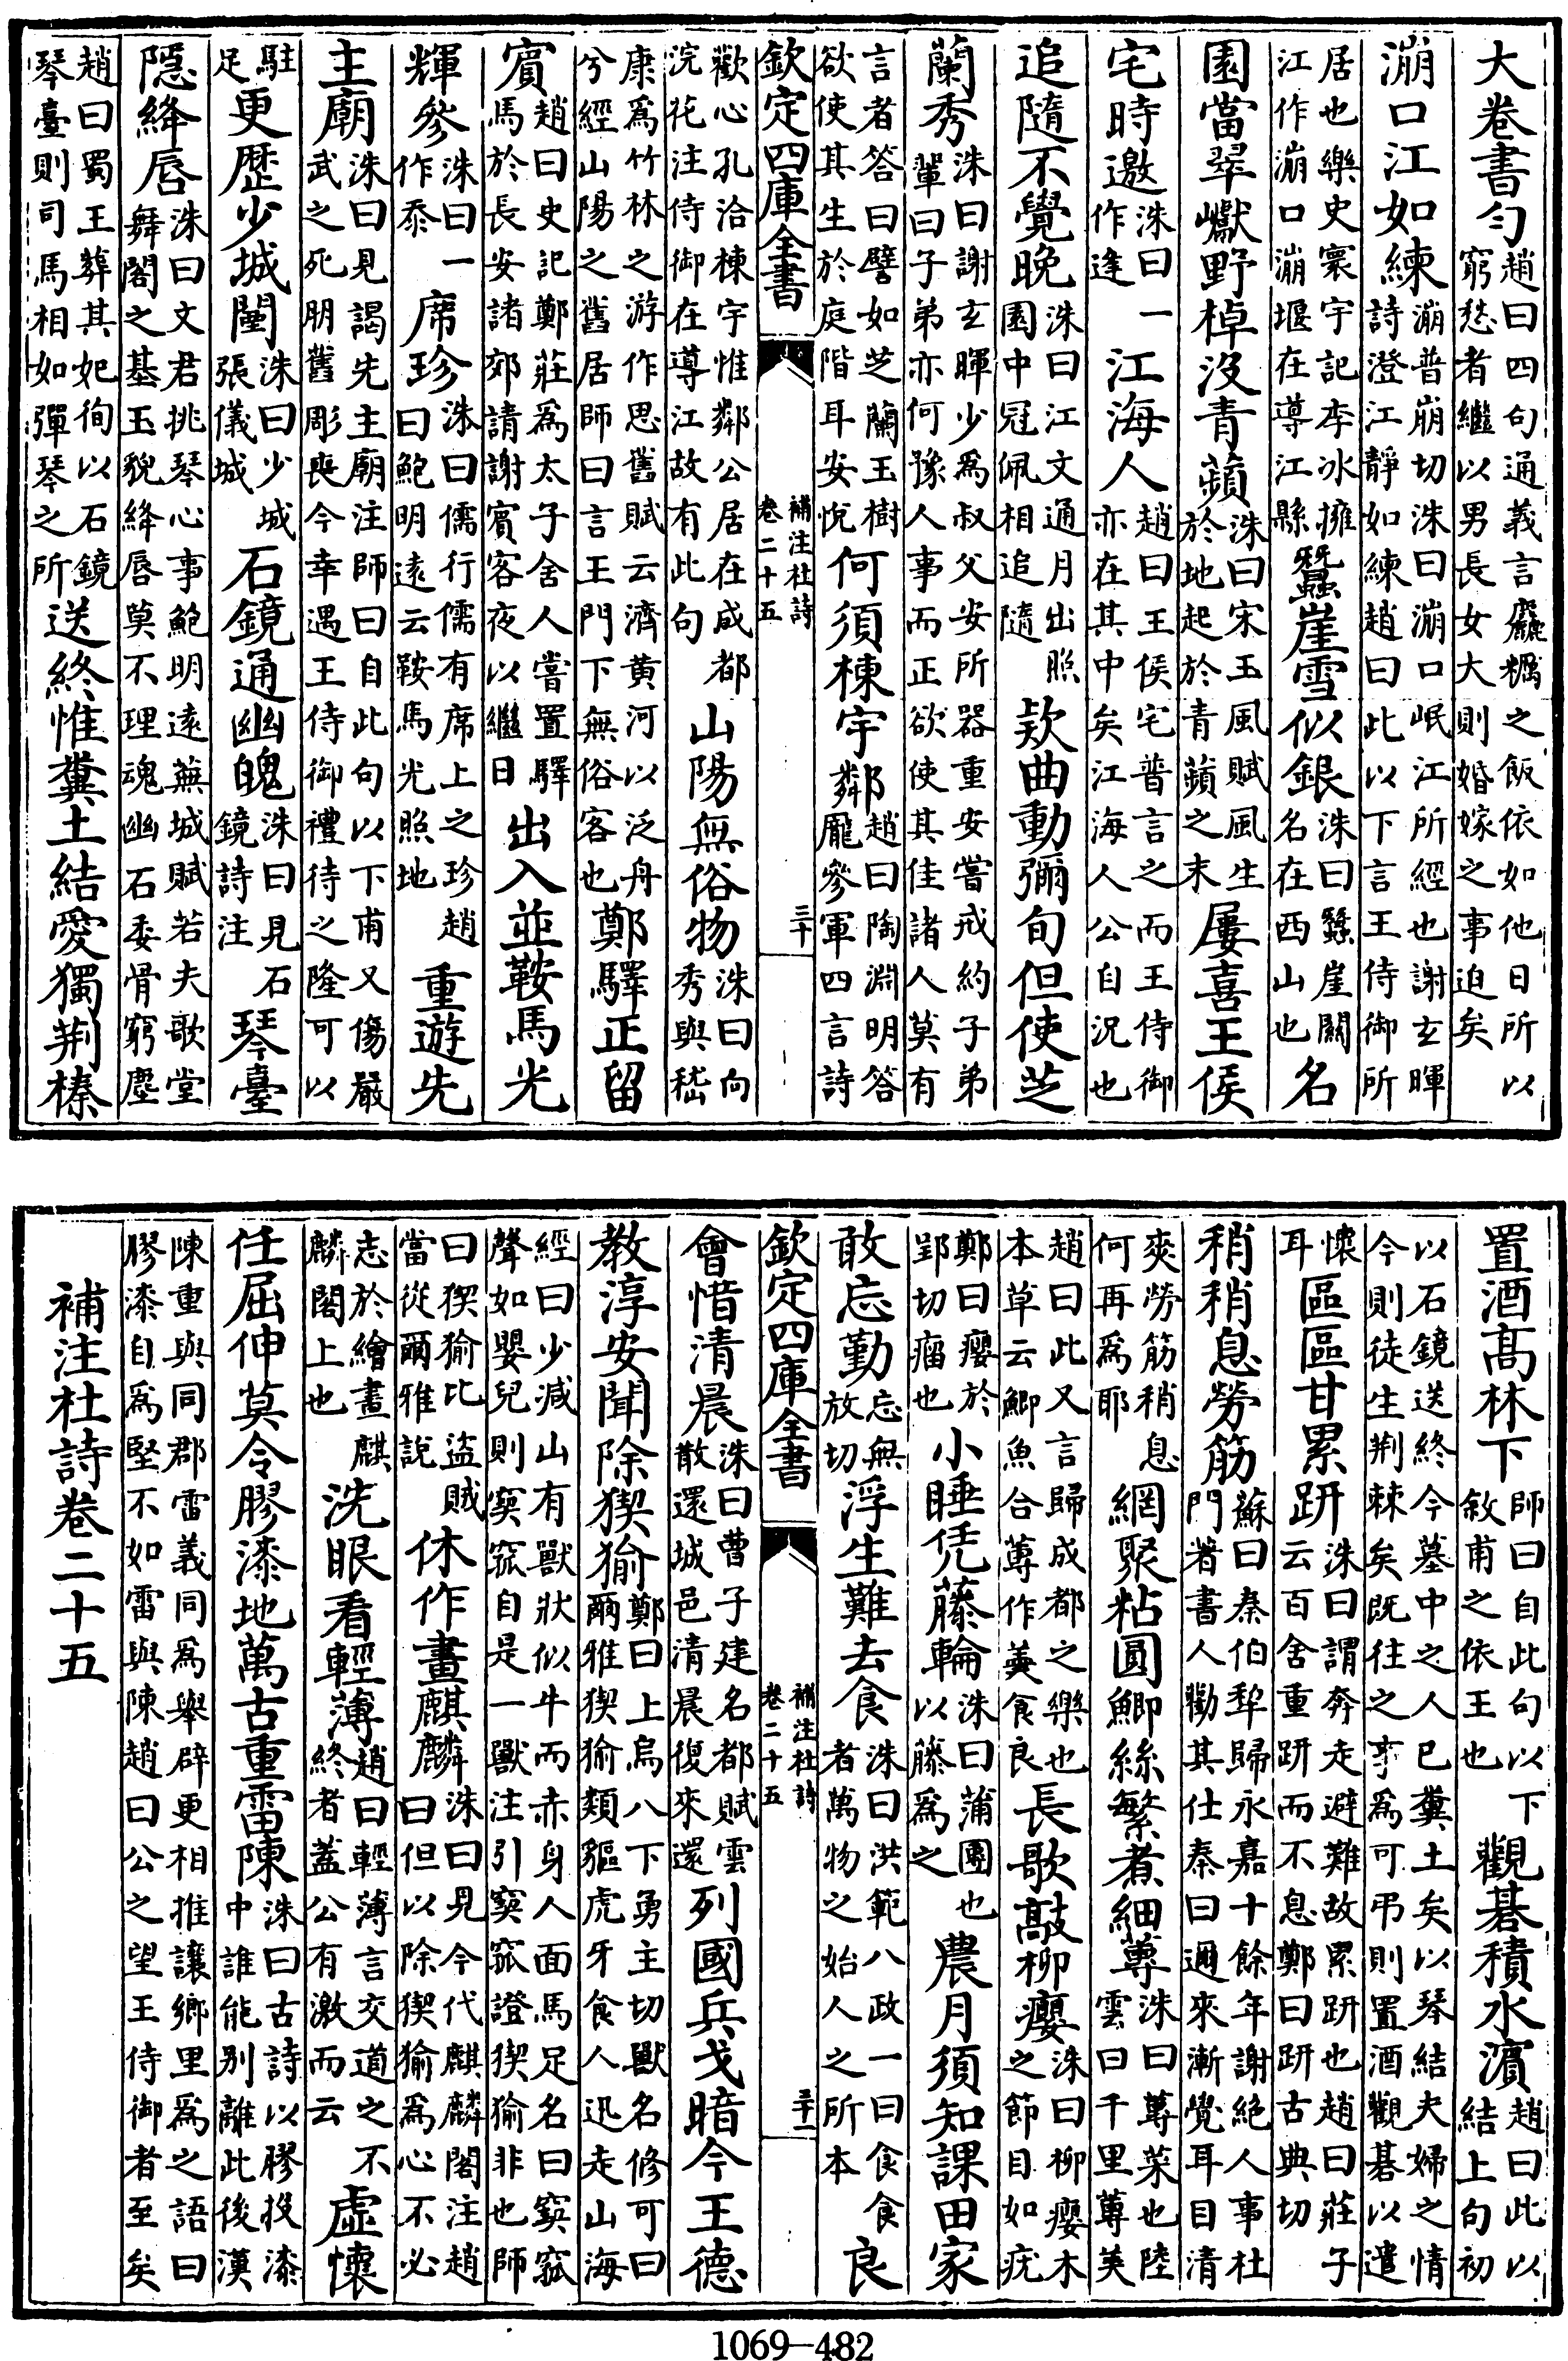 大卷書勻趙曰四句通義言麤糲之飯依如他日所以窮愁者繼以男長女大則婚嫁之事迫矣
漰口江如練漰普崩切洙曰漰口岷江所經也謝玄暉詩澄江靜如練趙曰此以下言王侍御所
居也樂史寰宇記李冰擁江作漰口漰堰在導江縣蠶崖雪似銀洙曰蠶崖關名在西山也名
園當翠巘野棹没青蘋洙曰宋玉風賦風生於地起於青蘋之末屢喜王侯
宅時邀洙曰一作逢江海人趙曰王侯宅普言之而王侍御亦在其中矣江海人公自况也
追隨不覺晚洙曰江文通月出照園中冠佩相追隨欵曲動彌旬但使芝
蘭秀洙曰謝玄暉少為叔父安所器重安嘗戒約子弟輩曰子弟亦何豫人事而正欲使其佳諸人莫有
言者答曰譬如芝蘭玉樹欲使其生於庭階耳安悅何須棟宇鄰趙曰陶淵明答龐參軍四言詩
欽定四庫全書 補注杜詩 卷二十五 三十
歡心孔洽棟宇惟鄰公居在成都浣花注侍御在導江故有此句山陽無俗物洙曰向秀與嵇
康為竹林之游作思舊賦云濟黄河以泛舟兮經山陽之舊居師曰言王門下無俗客也鄭驛正留
賓趙曰史記鄭莊為太子舍人嘗置驛馬於長安諸郊請謝賓客夜以繼日出入並鞍馬光
輝參洙曰一作忝席珍洙曰儒行儒有席上之珍趙曰鮑明遠云鞍馬光照地重遊先
主廟洙曰見謁先主廟注師曰自此句以下甫又傷嚴武之死朋舊彫喪今幸遇王侍御禮待之隆可以
駐足更歴少城闉洙曰少城張儀城石鏡通幽魄洙曰見石鏡詩注琴臺
隱絳唇洙曰文君挑琴心事鮑明遠蕪城賦若夫歌堂舞閣之基玉貌絳唇莫不理魂幽石委骨窮塵
趙曰蜀王葬其妃徇以石鏡琴臺則司馬相如彈琴之所送終惟糞土結愛獨荆榛
置酒髙林下師曰自此句以下敘甫之依王也觀碁積水濵趙曰此以結上句初
以石鏡送終今墓中之人已糞土矣以琴結夫婦之情今則徒生荆棘矣既往之事為可弔則置酒觀碁以遣
懷耳區區甘累趼洙曰謂奔走避難故累趼也趙曰莊子云百舍重趼而不息鄭曰趼古典切
稍稍息勞筋蘇曰秦伯犂歸永嘉十餘年謝絶人事杜門著書人勸其仕秦曰邇來漸覺耳目清
爽勞筋稍息何再為耶網聚粘圓鯽絲繁煮細蓴洙曰蓴菜也陸雲曰千里蓴羮
趙曰此又言歸成都之樂也本草云鯽魚合蓴作羮食良長歌敲柳癭洙曰柳癭木之節目如疣
鄭曰癭於郢切瘤也小睡凭藤輪洙曰蒲團也以藤為之農月須知課田家
敢忘勤忘無放切浮生難去食洙曰洪範八政一曰食食者萬物之始人之所本良
欽定四庫全書 補注杜詩 卷二十五 三十一
會惜清晨洙曰曹子建名都賦雲散還城邑清晨復來還列國兵戈暗今王德
教淳安聞除猰㺄鄭曰上烏八下勇主切獸名修可曰爾雅猰㺄類貙虎牙食人迅走山海
經曰少減山有獸狀似牛而赤身人面馬足名曰窫窳聲如嬰兒則窫窳自是一獸注引窫窳證猰㺄非也師
曰猰㺄比盜賊當從爾雅說休作畫麒麟洙曰見今代麒麟閣注趙曰但以除猰㺄為心不必
志於繪畫麒麟閣上也洗眼看輕薄趙曰輕薄言交道之不終者蓋公有激而云虛懷
任屈伸莫令膠漆地萬古重雷陳洙曰古詩以膠投漆中誰能别離此後漢
陳重與同郡雷義同為舉辟更相推讓鄉里為之語曰膠漆自為堅不如雷與陳趙曰公之望王侍御者至矣
補注杜詩卷二十五
1069-482